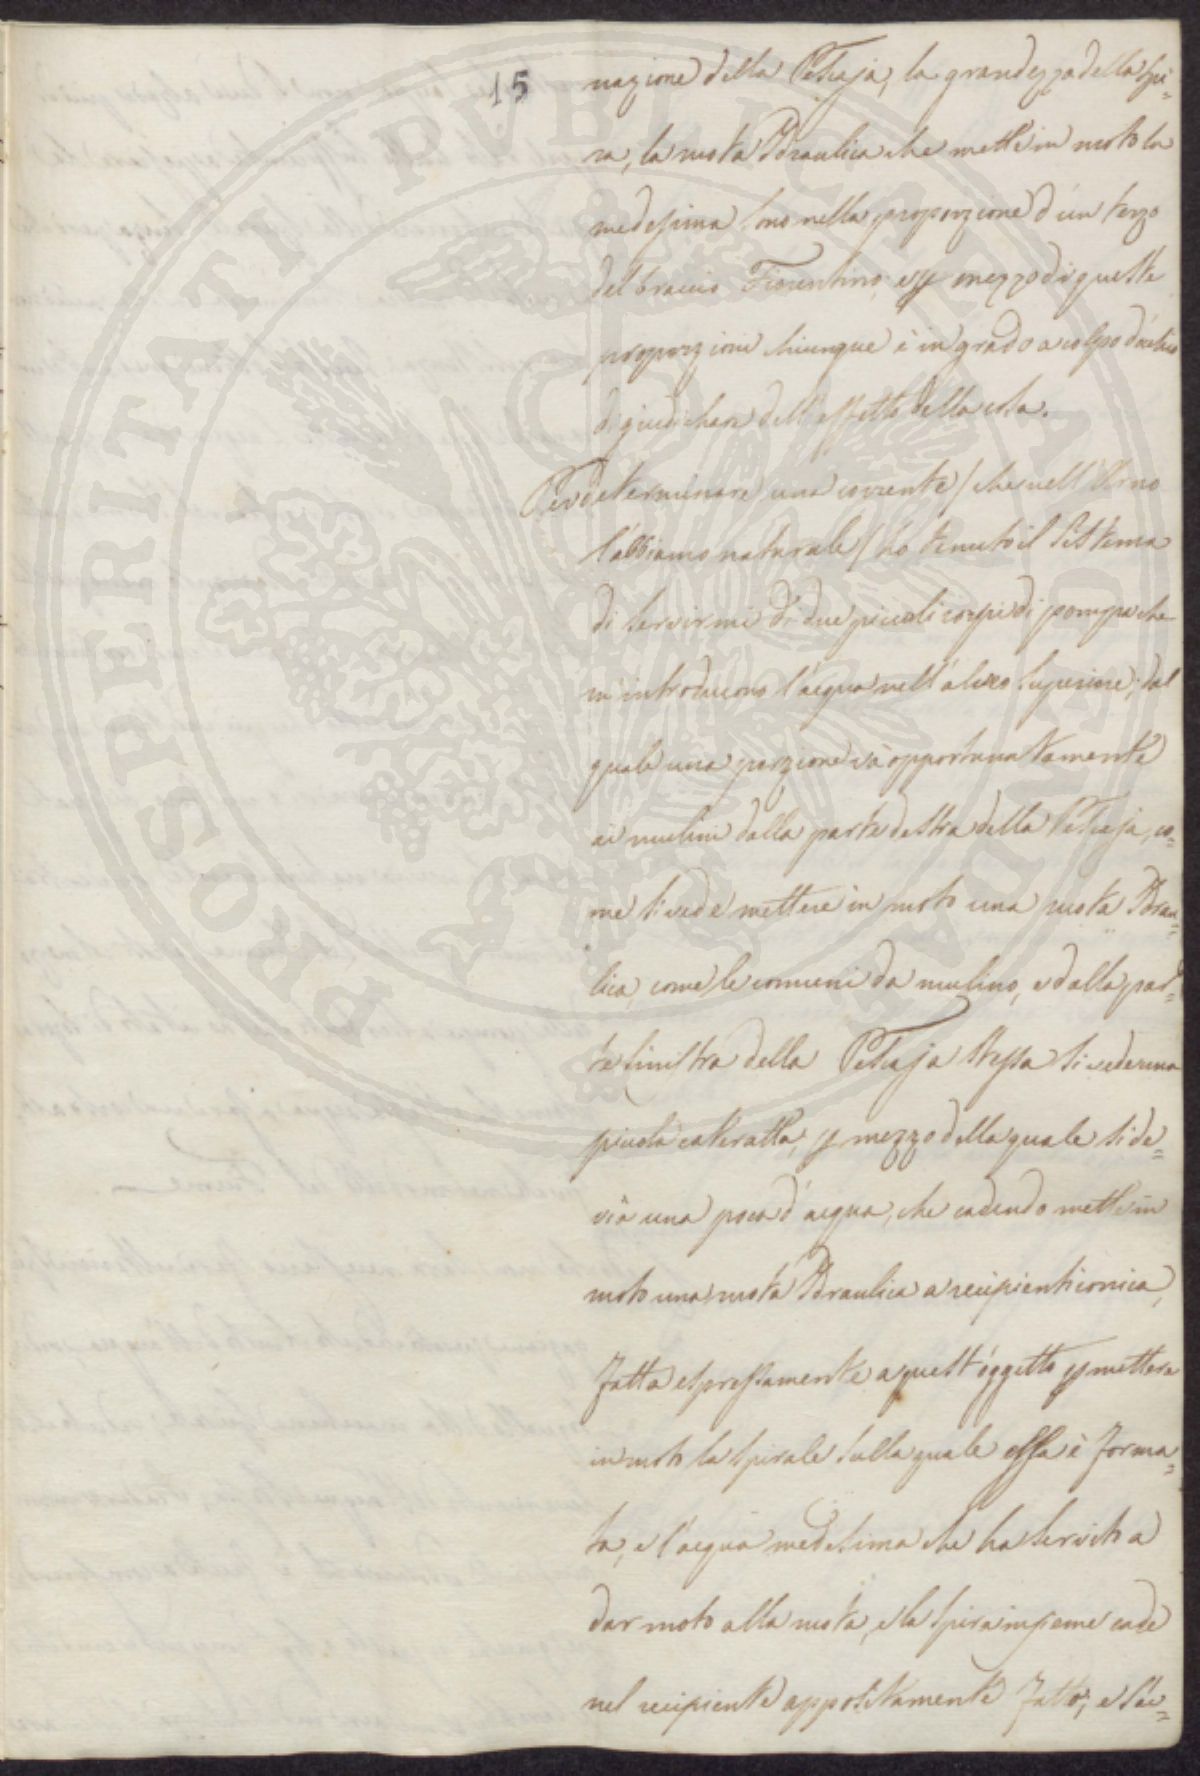 15
nazione della Pescaja, la grandezza della spi=
ra, la ruota Idraulica che mette in moto la
medesima sono nella proporzione d'un terzo
del braccio Fiorentino; e p mezzo di queste
proporzioni chiunque è in grado a colpo d'occhio
di giudichare dell'effetto della cosa.
Per determinare una corrente / che nell'Arno
l'abbiamo naturale / ho tenuto il Sistema
di servirmi di due piccoli corpi di pompa che
m'introducono l'acqua nell'alveo superiore; dal
quale una porzione và opportunatamente
ai mulini dalla parte destra della Pescaja, co=
me si vede mettere in moto una ruota Idrau=
lica, come le comuni da mulino, e dalla par=
te sinistra della Pescaja stessa si vede una
piccola cateratta, p mezzo della quale si de=
via una poca d'acqua, che cadendo mette in
moto una ruota Idraulica a recipienti conica,
fatta espressamente a quest'oggetto p mettere
in moto la spirale sulla quale essa è forma=
ta, e l'acqua medesima che ha servito a
dar moto alla ruota, e la spira insieme cade
nel recipiente appositamente fatto; e s'in=
PROSPERITATI PVBLICAE AVGENDAE